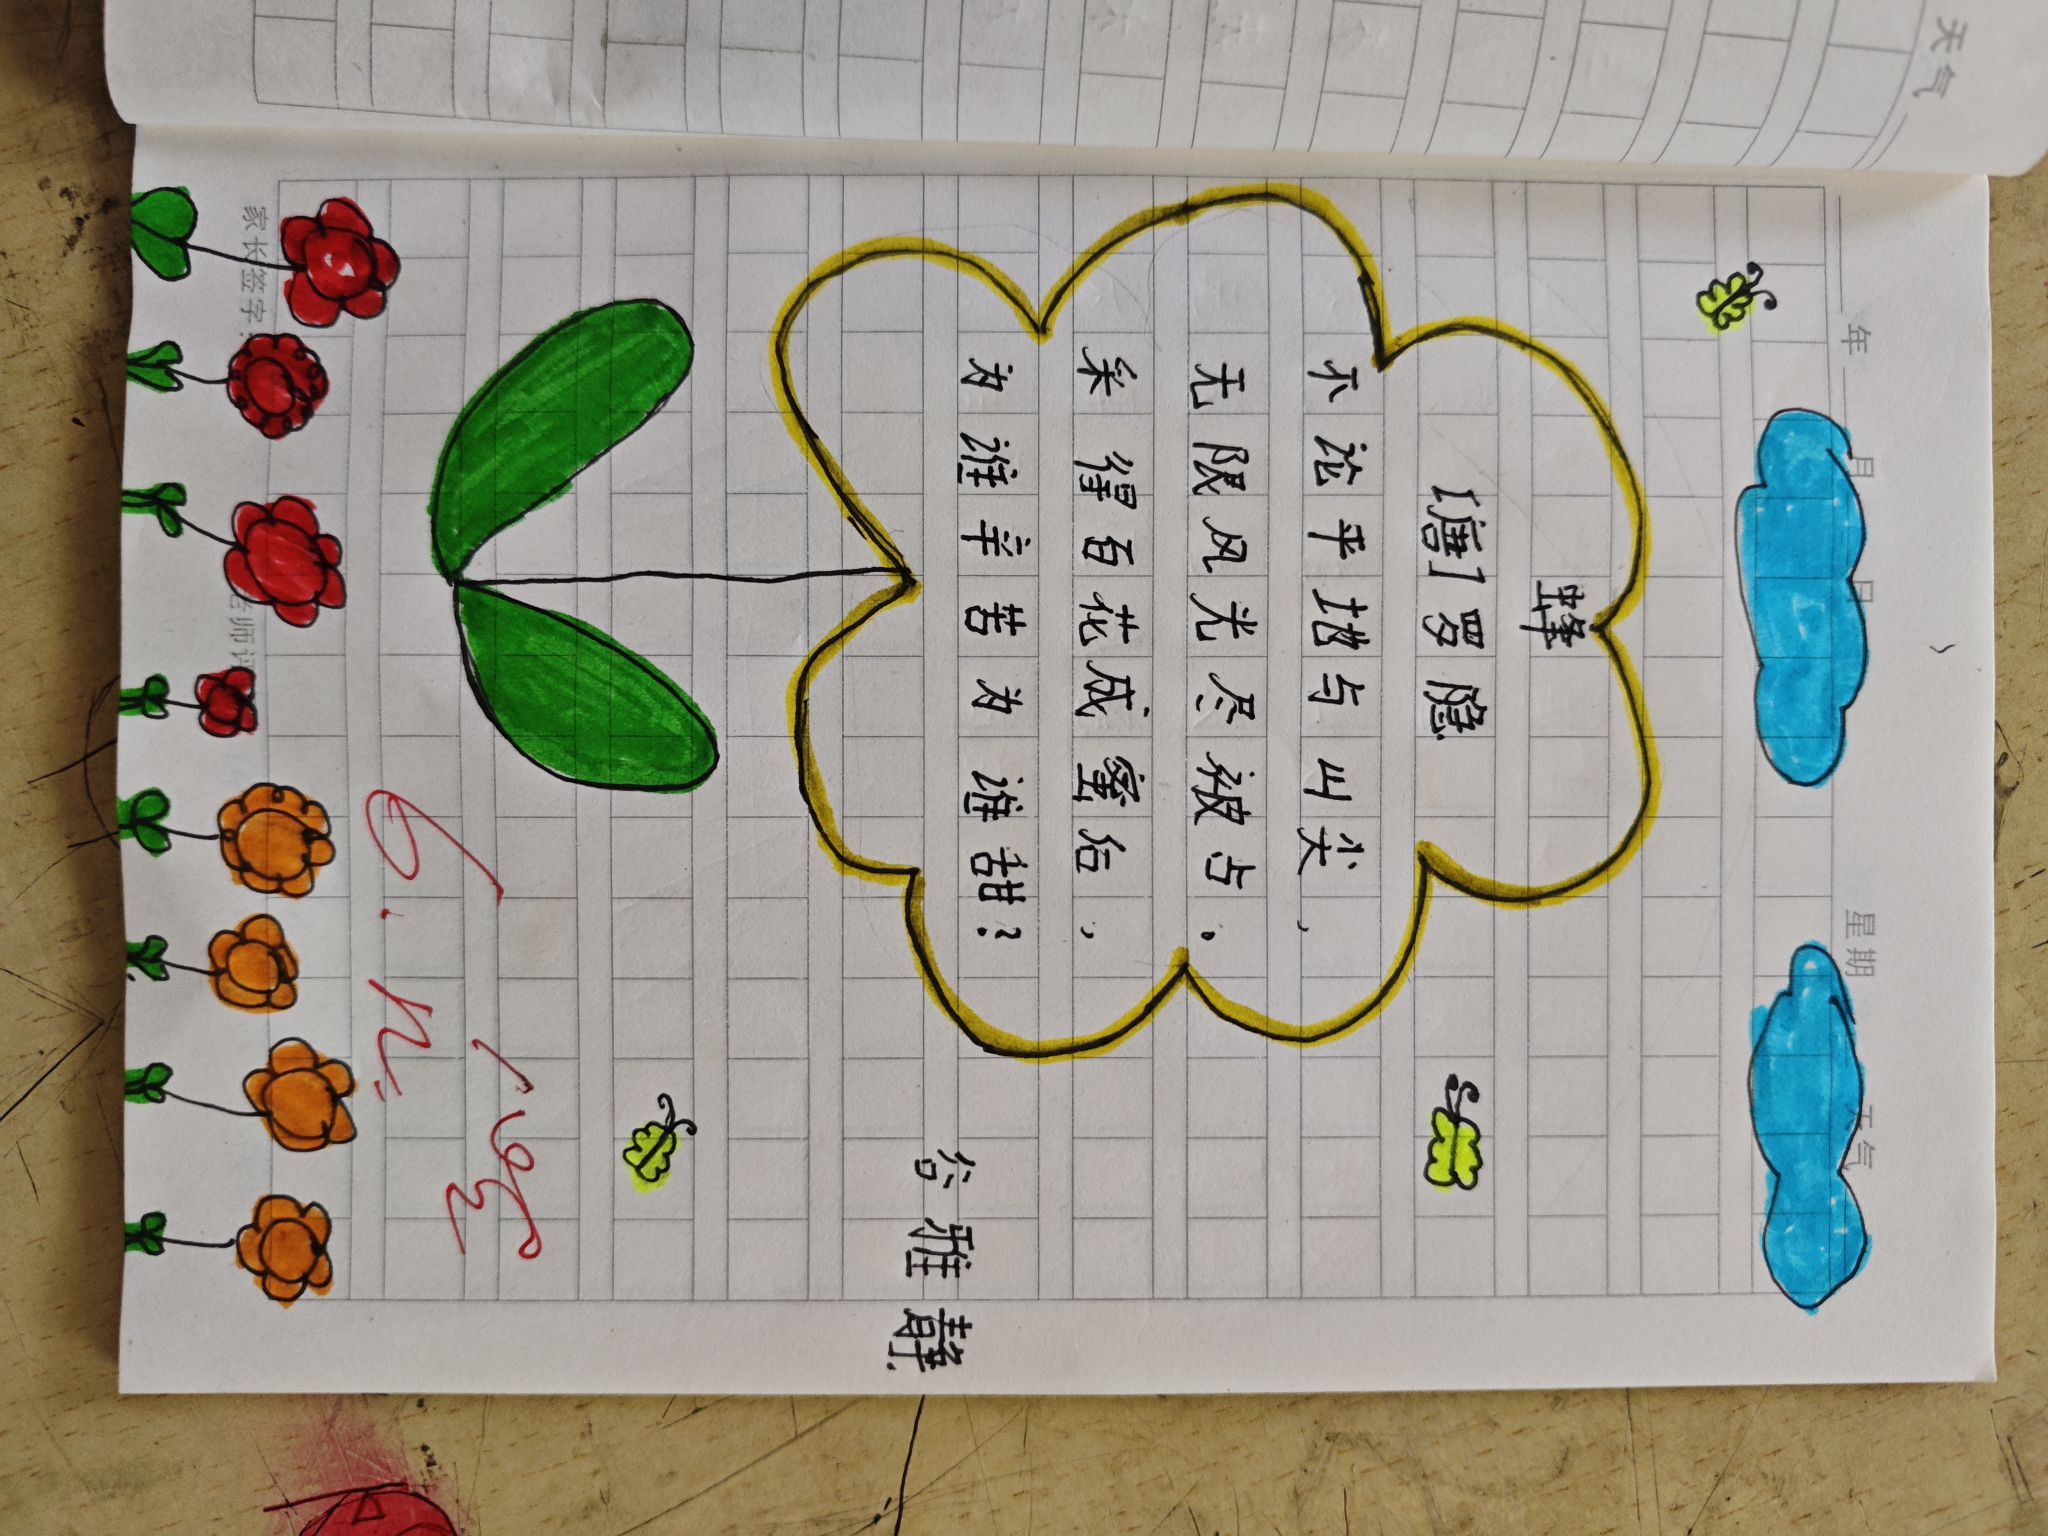 天气
年 月 日 星期 天气
蜂
[唐] 罗隐
不论平地与山尖，
无限风光尽被占。
采得百花成蜜后，
为谁辛苦为谁甜？
谷雅静
家长签字： 老师评